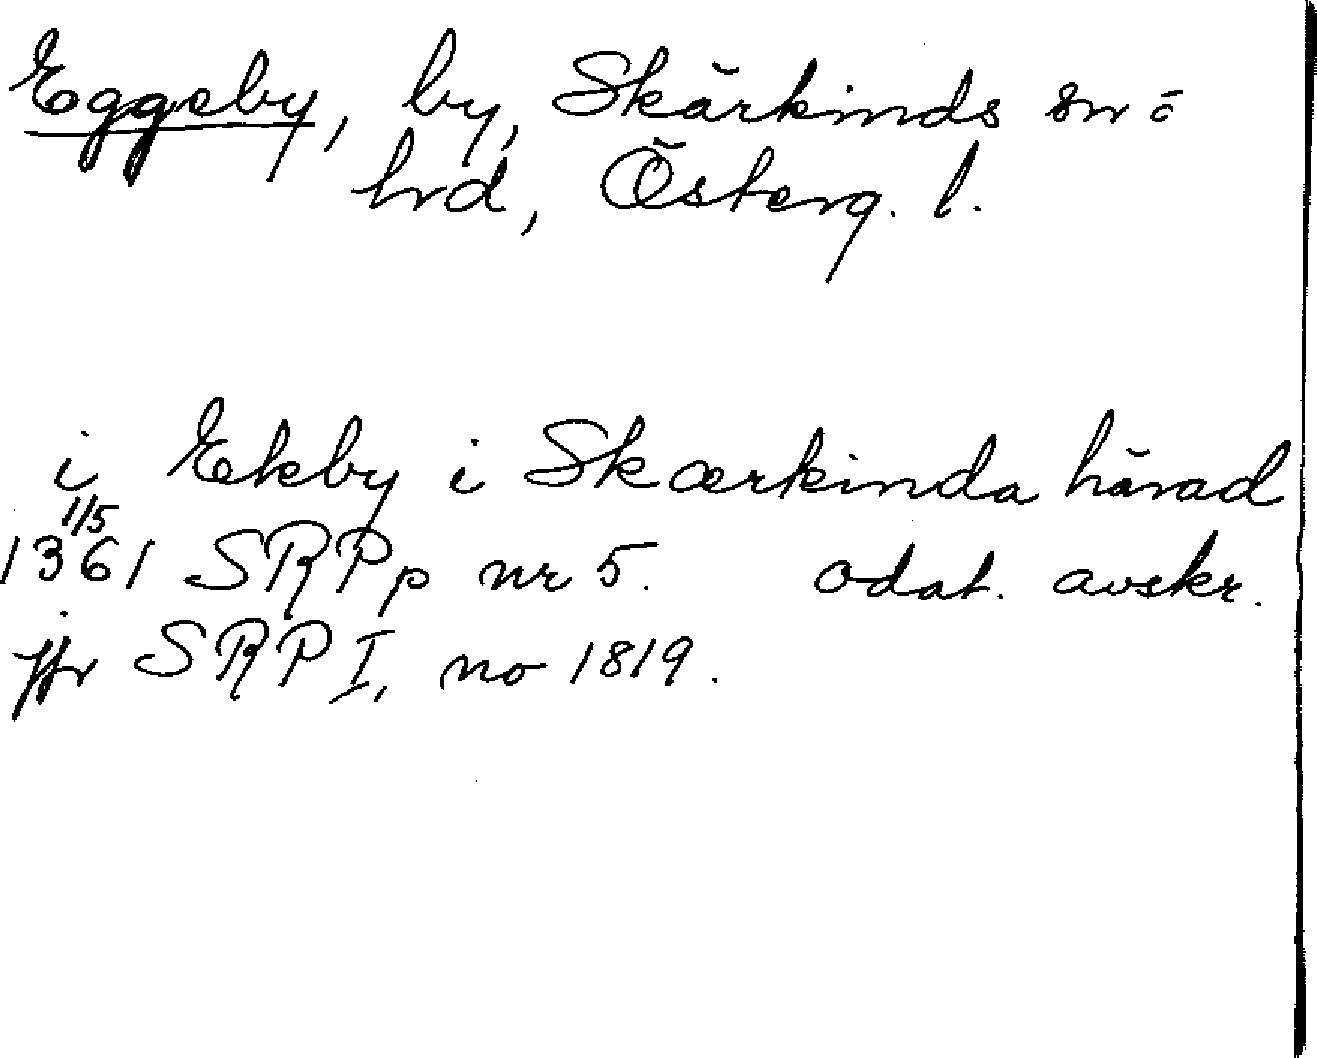 Eggeby, by, Skärkinds sn o
hd, Österg. l.
i Ekby i Skærkinda härad
1/5
1361 SRPp nr 5. odat. avskr.
jfr SRP I, no 1819.